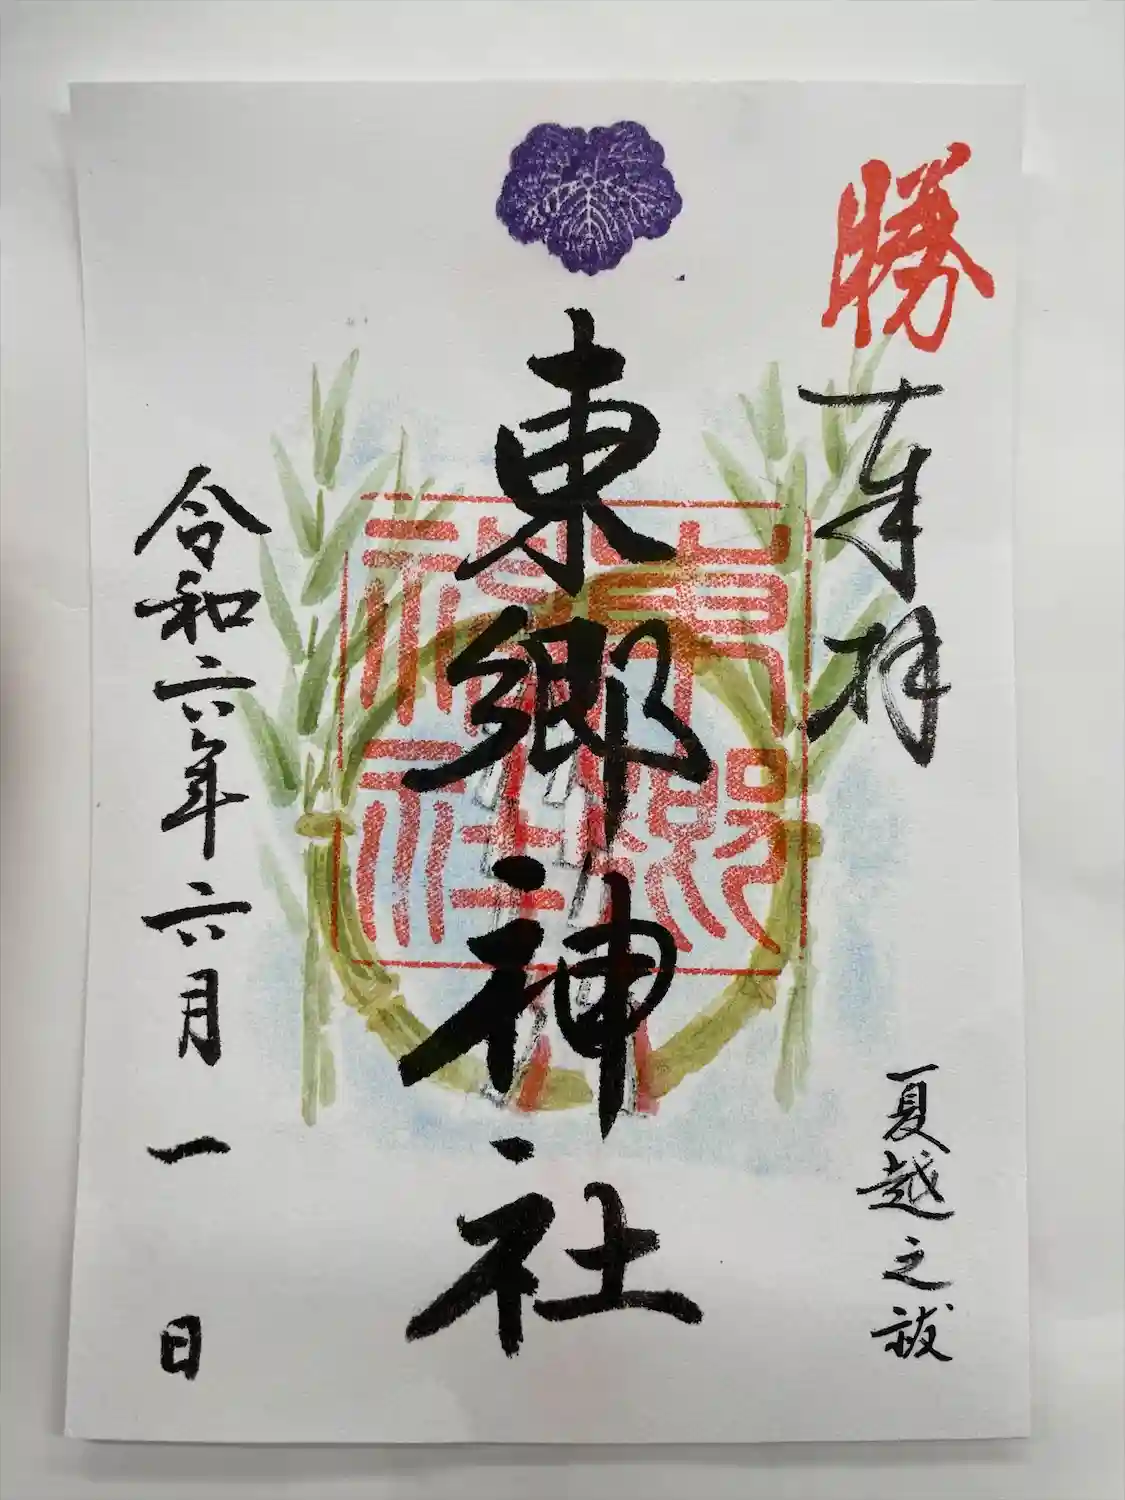 勝
奉拝
夏越之祓
東郷神社
東郷神社
令和六年六月一日